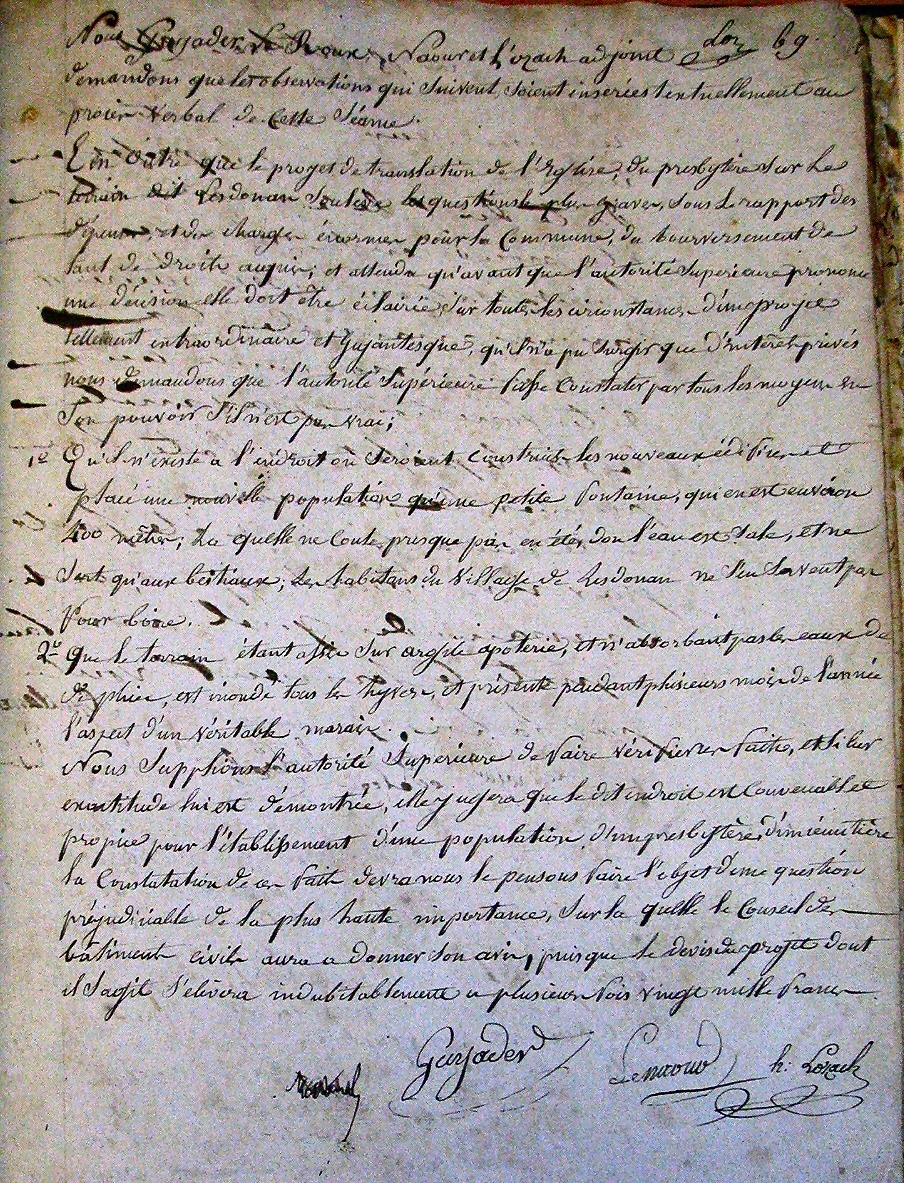 Nous Guyader, Le Roux, Naour et L'ozach adjoint 69.
demandons que les observations qui suivent, soient insérées textuellement au
procès-verbal de Cette Séance.
En outre que le projet de translation de l'Eglise, du presbytère sur le
terrain dit Lesdonan souleve les questions les plus graves, sous le rapport des
dépenses, et des charges enormes pour la Commune, du bouversement de
tant de droits acquis; et attendu qu'avant que l'autorité Superieure prononce
une décision elle doit être éclairée, sur toutes les circonstances d'une projet
tellement extraordinaire et Gigantesque, qu'il n'a pu surgir que d'intérêts privés
nous demandons que l'autorité Supérieure fasse Constater par tous les moyens en
Son pouvoir S'il n'est pas vrai;
1º Qu'il n'existe a l'endroit ou Seroient Construits les nouveaux édifices et
placé une nouvelle population qu'une petite fontaine, qui en est environ
400 mètres; La quelle ne Coule presque pas en été, don l'eau est Sale, et ne
Sert qu'aux bestiaux; Les habitans du Village de Lesdonan ne s'en Servent pas
Pour boire.
2º Que le terrain étant assis Sur argile a poterie, et n'absorbant pas les eaux de
de pluie, est inondé tous les hyvers, et présente pendant plusieurs mois de l'année
l'aspect d'un véritable marais
Nous Supplions l'autorité Superieure de faire vérifier ces faits, et si leur
exactitude lui est démontrée, elle jugera que le dit endroit est Convenable et
propice pour l'établissement d'une population, d'un presbytère, d'un cimetière
la Constatation de ces faits devra nous le pensons faire l'objet d'une question
préjudiciable de la plus haute importance, Sur la quelle le Conseil des
bâtiments civils aura a donner son avis, puis que le devis du projet dont
il s'agit S'elèvera indubitablement a plusieurs fois vingt mille francs
Guyader Lenaour h. Lozach